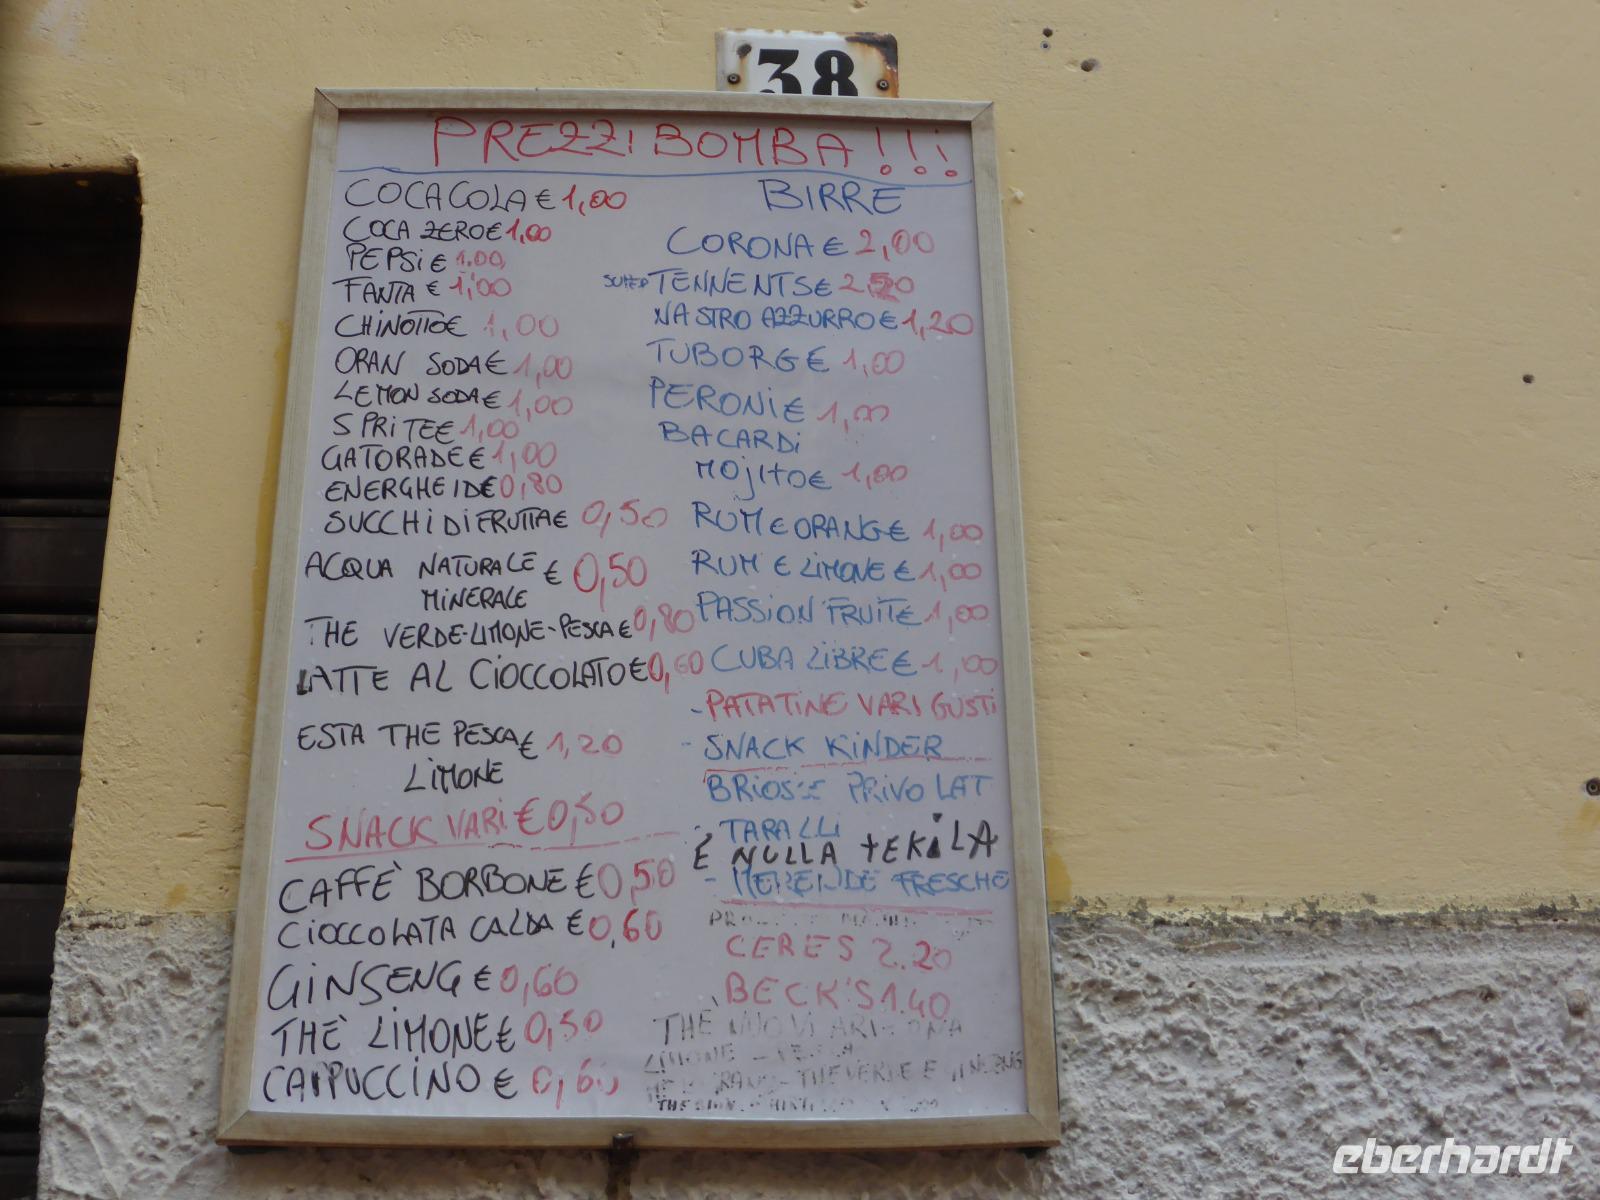 38
PREZZI BOMBA!!!
COCACOLA € 1,00
COCA ZERO € 1,00
PEPSI € 1.00
FANTA € 1,00
CHINOTTO € 1,00
ORAN SODA € 1,00
LEMON SODA € 1,00
SPRITE € 1,00
GATORADE € 1,00
ENERGHEID € 0,80
SUCCHI DI FRUTTA € 0,50
ACQUA NATURALE € 0,50
MINERALE
THE VERDE-LIMONE-PESCA € 0,80
LATTE AL CIOCCOLATO € 0,60
ESTA THE PESCA € 1,20
LIMONE
SNACK VARI € 0,50
CAFFÈ BORBONE € 0,50
CIOCCOLATA CALDA € 0,60
GINSENG € 0,60
THÈ LIMONE € 0,50
CAPPUCCINO € 0,60
BIRRE
CORONA € 2,00
SUPER TENNENTS € 2,50
NASTRO AZZURRO € 1,20
TUBORG € 1,00
PERONI € 1,00
BACARDI
MOJITO € 1,00
RUM E ORANG € 1,00
RUM E LIMONE € 1,00
PASSION FRUIT € 1,00
CUBA LIBRE € 1,00
- PATATINE VARI GUSTI
- SNACK KINDER
BRIOSE PRIVO LAT
- TARALLI
E NULLA TEKILA
- MERENDE FRESCHE
CERES 2.20
BECK'S 1.40
THÈ NUOVI ARIZONA
LIMONE -
THE VERDE E GINSENG
eberhardt